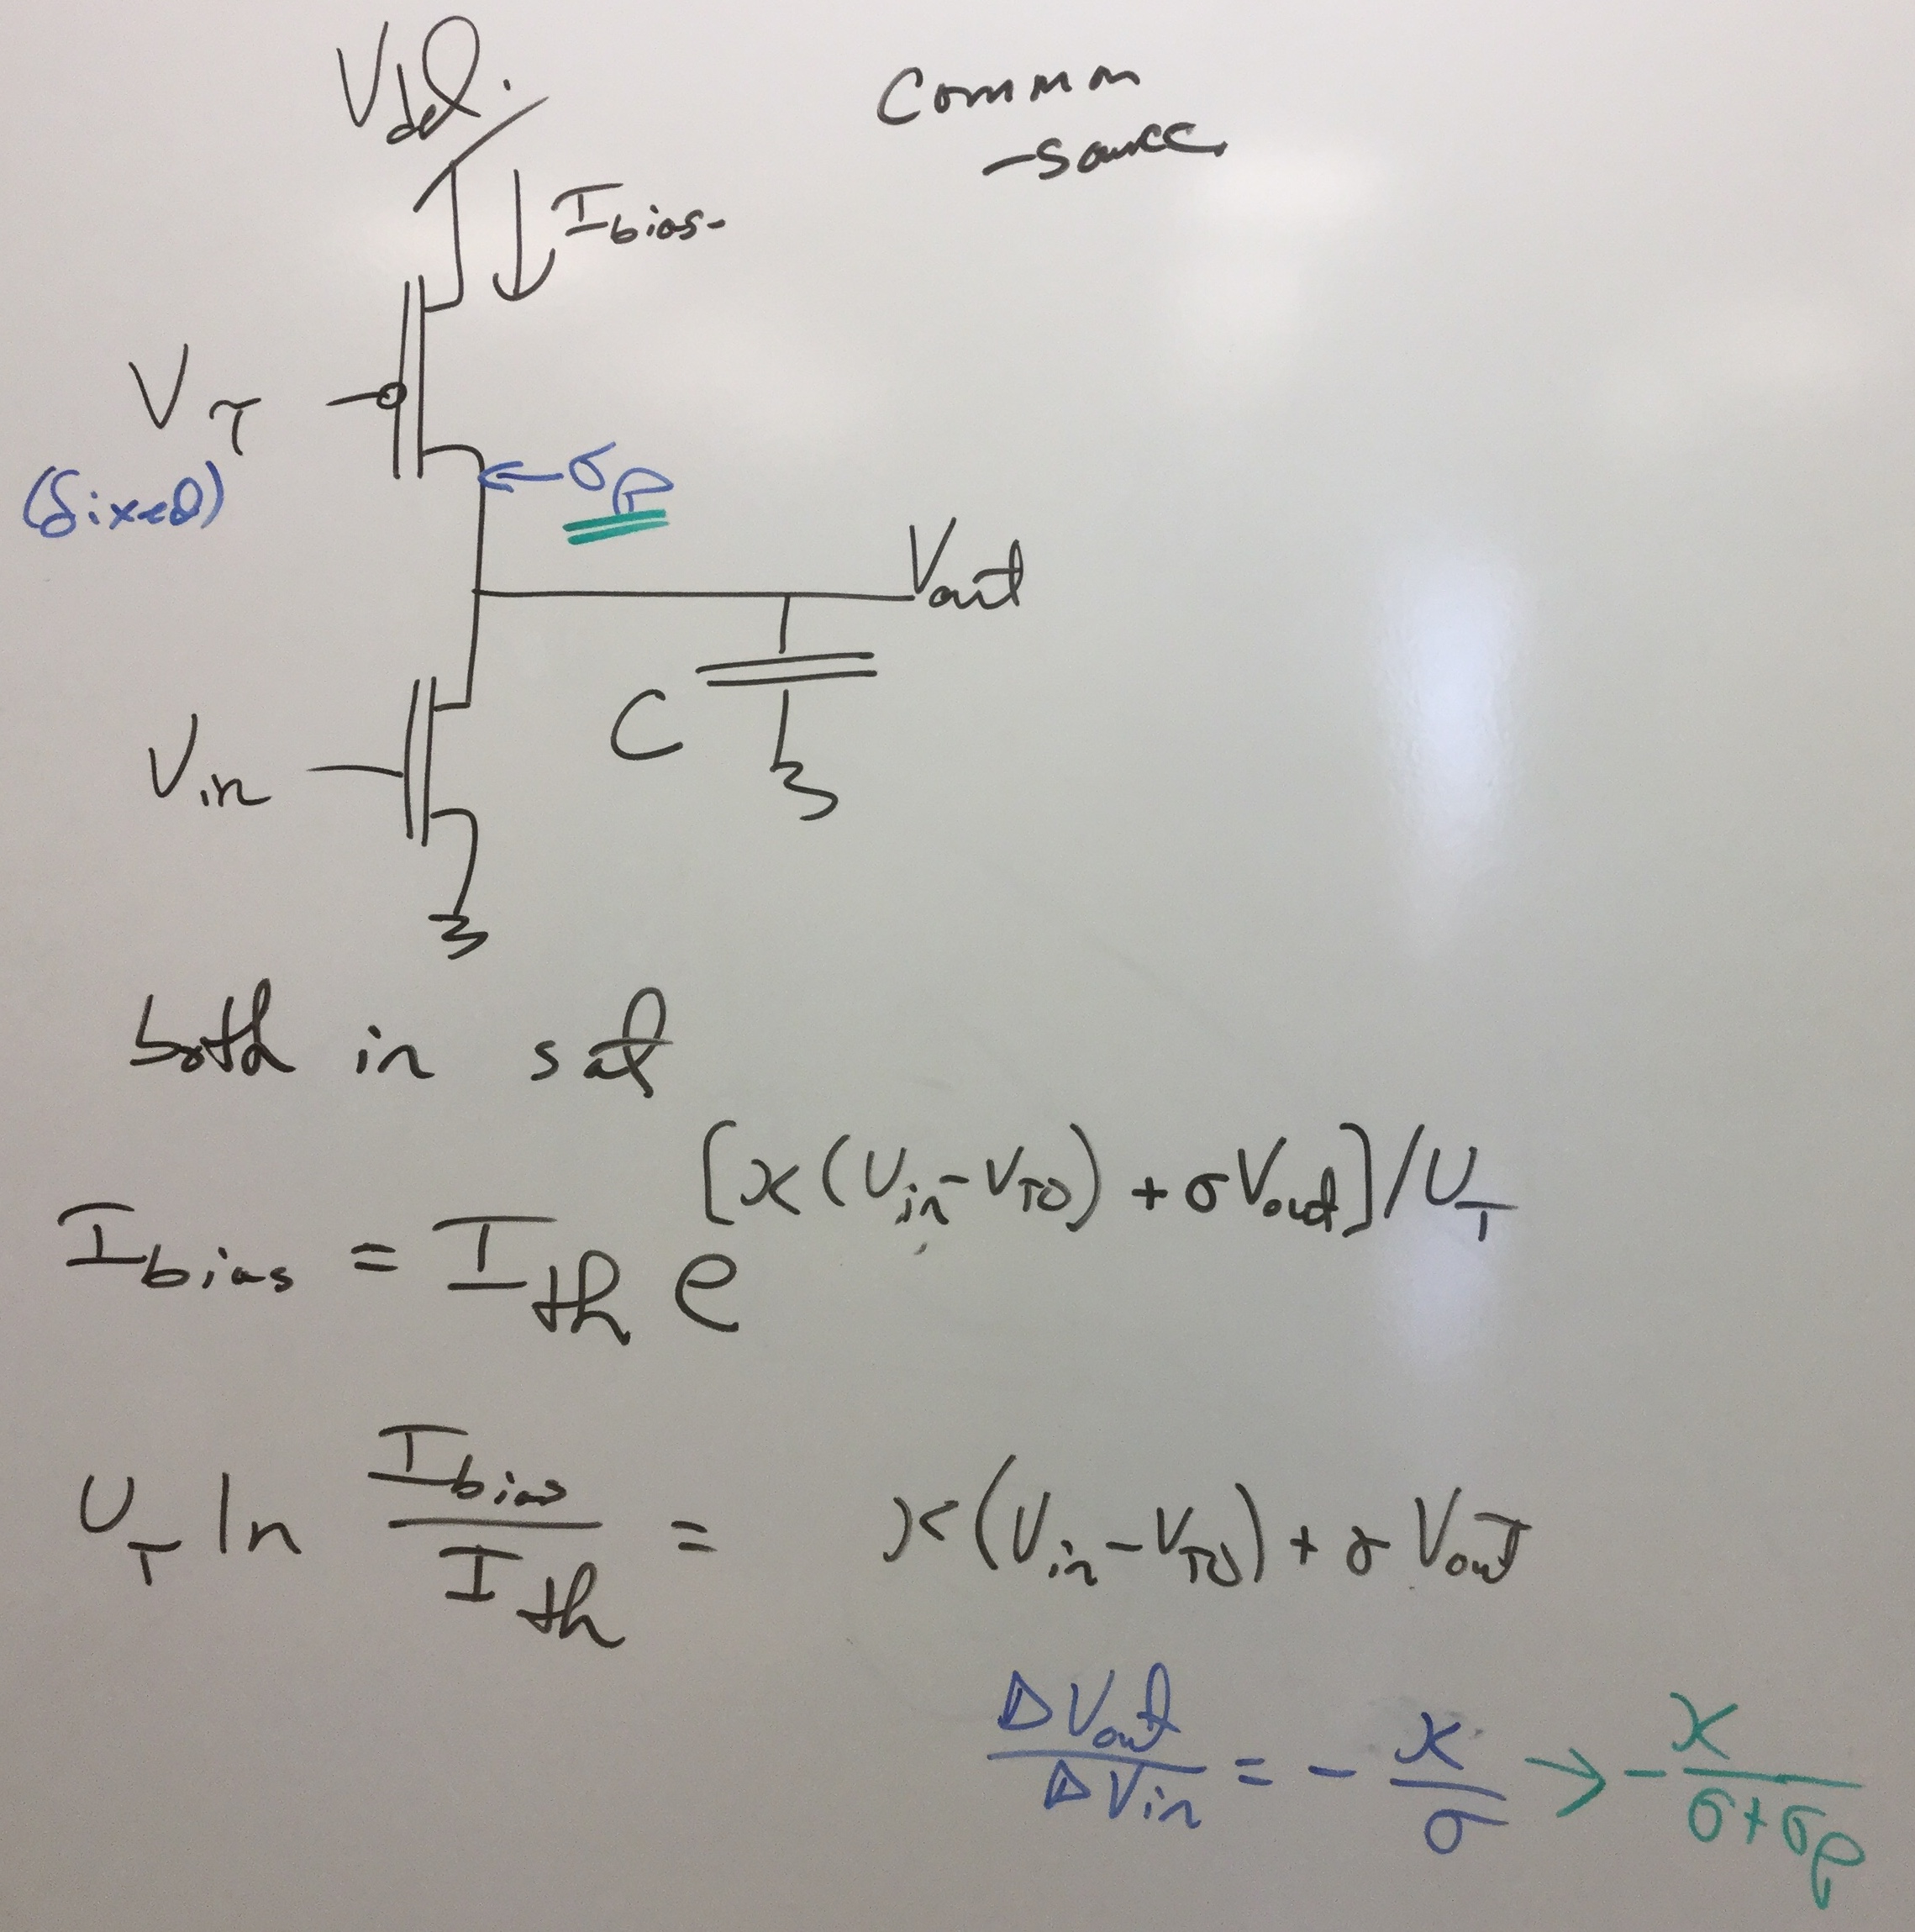 Vdd.
Common
-source
Ibias-
Vτ
(fixed)
←σp
Vout
C
Vin
both in sat
Ibias = Ith e^[κ(Vin-VT0) + σVout]/UT
UT ln Ibias/Ith = κ(Vin-VT0) + σ Vout
ΔVout/ΔVin = - κ/σ → - κ/(σ+σp)